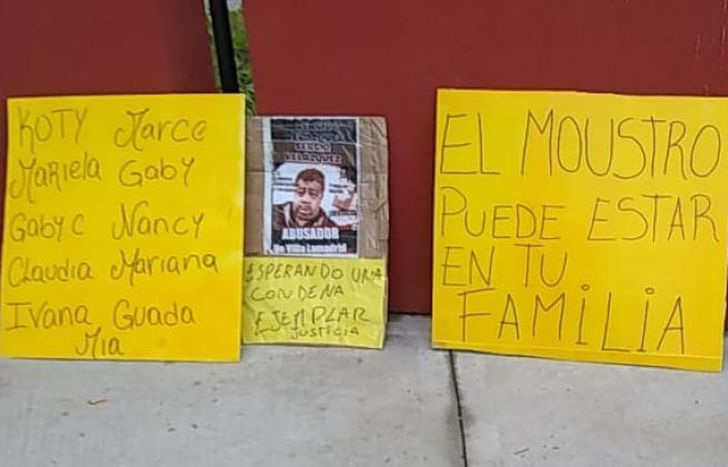 KOTY Marce
Mariela Gaby
Gaby C Nancy
Claudia Mariana
Ivana Guada
Mia
VELAZQUEZ
ABUSADOR
De Villa Lamadrid
ESPERANDO UNA
CONDENA
EJEMPLAR
JUSTICIA
EL MOUSTRO
PUEDE ESTAR
EN TU
FAMILIA